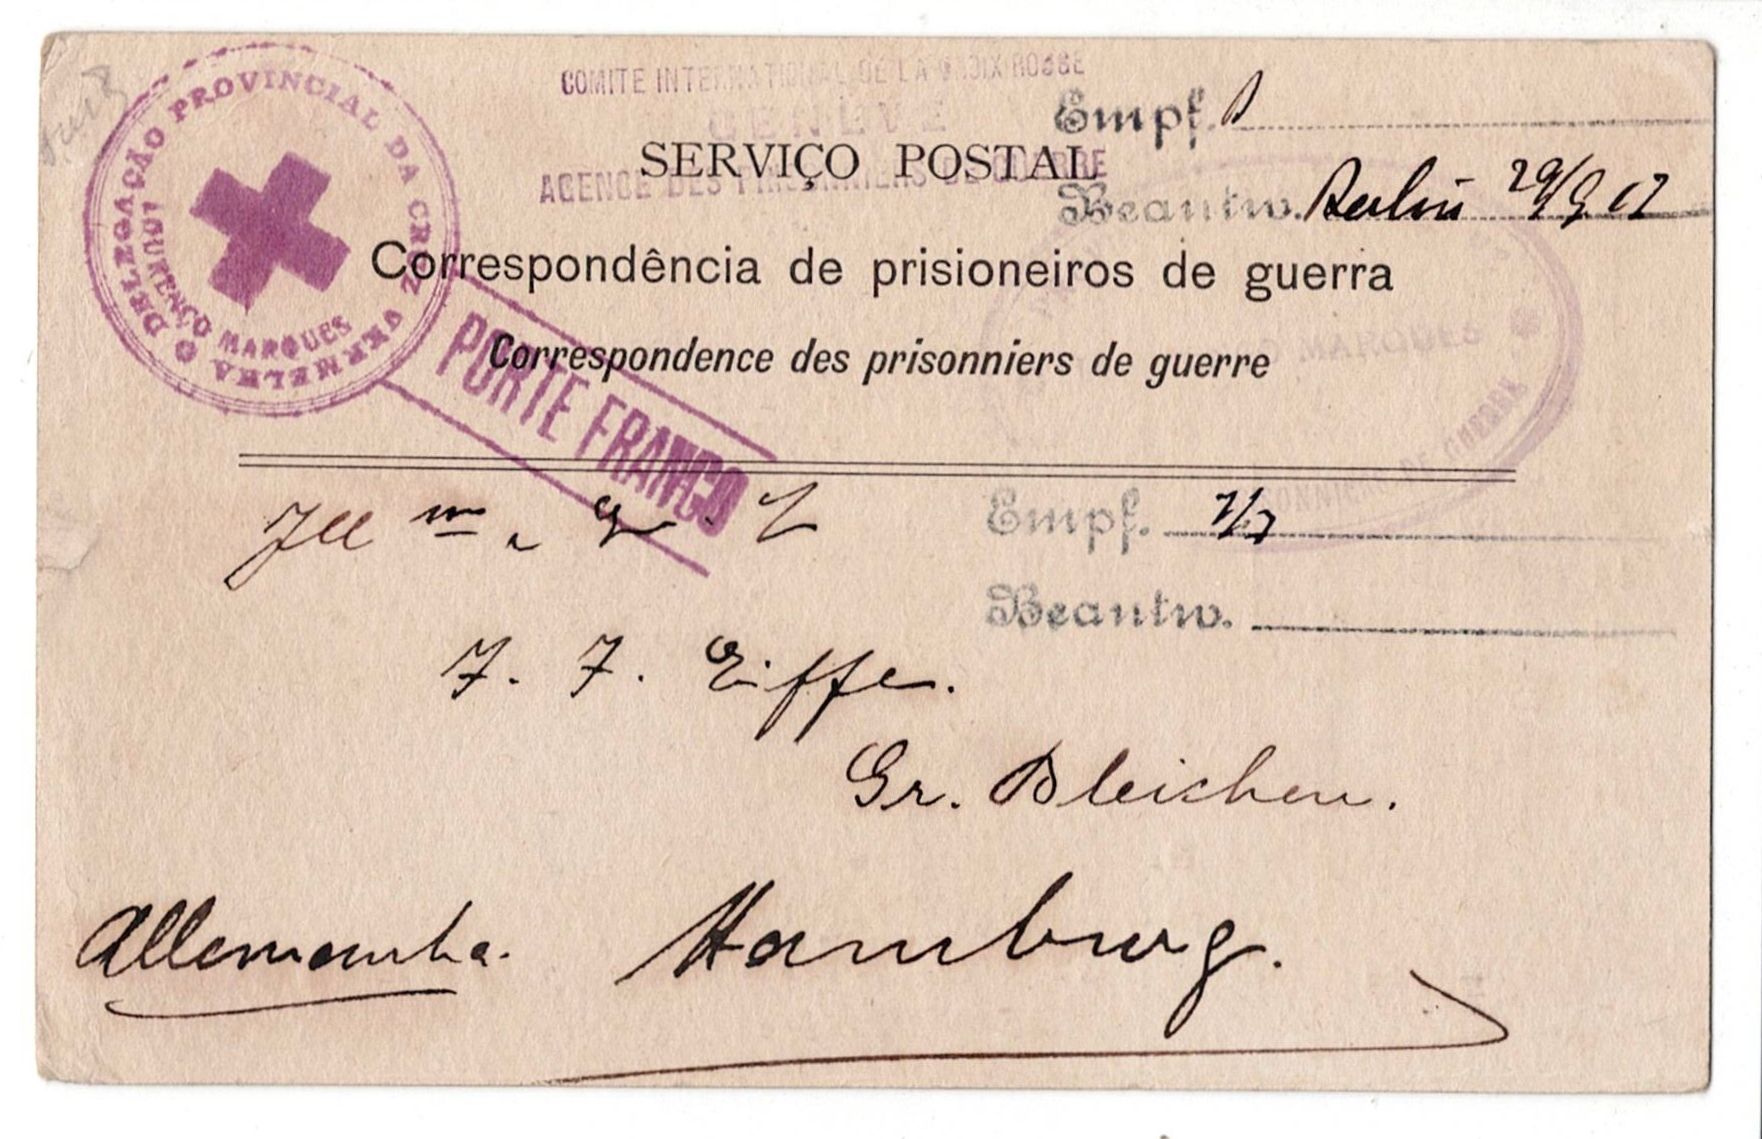 DELEGAÇÃO PROVINCIAL DA CRUZ VERMELHA
LOURENÇO MARQUES
COMITE INTERNATIONAL DE LA CROIX ROUGE
GENEVE
AGENCE DES PRISONNIERS DE GUERRE
Empf.
SERVIÇO POSTAL
Beantw. 29/9 17
Correspondência de prisioneiros de guerra
Correspondence des prisonniers de guerre
MARQUES
DE GUERRE
PORTE FRANCO
Ill m
Empf. 7/7
Beantw.
F. F. Eiffe.
Gr. Bleichen.
Allemanha. Hamburg.